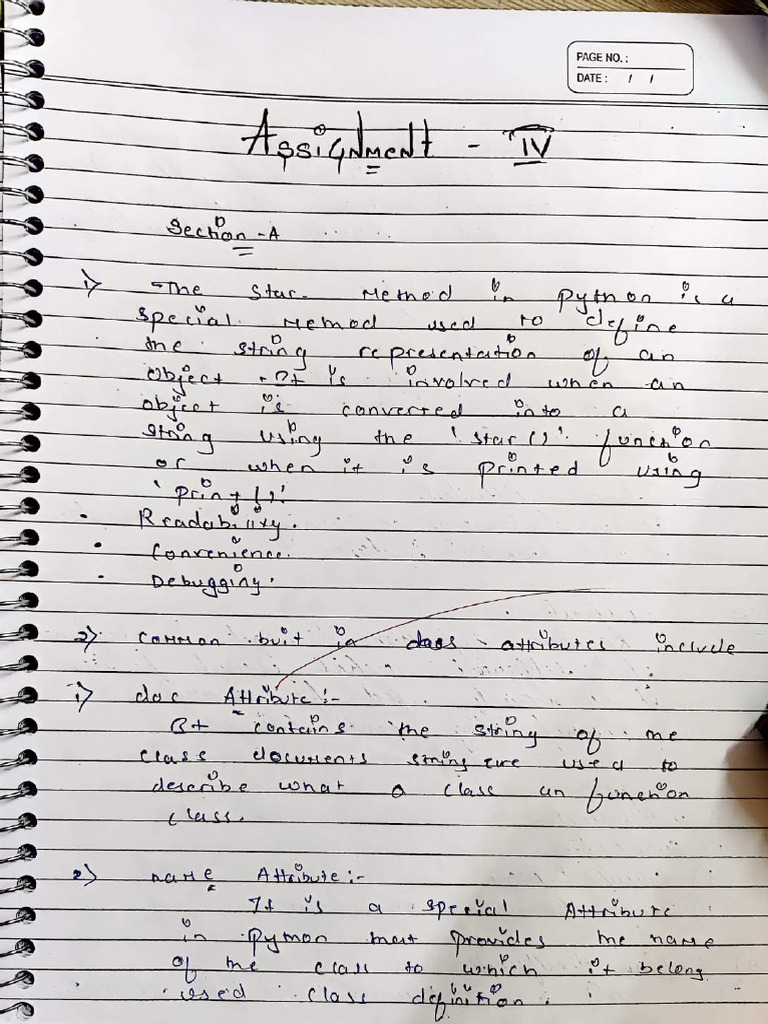 PAGE NO.:
DATE: / /
Assignment - IV
Section - A
1) The star method in python is a
special method used to define
the string representation of an
object. It is involved when an
object is converted into a
string using the 'star()' function
or when it is printed using
'print()'.
• Readability.
• Convenience.
• Debugging.
2) common buit in class attributes include
1) doc Attribute:-
It contains the string of the
class documents string are used to
describe what a class an function
class.
2) name Attribute:-
It is a special Attribute
in python that provides the name
of the class to which it belong
used class definition.